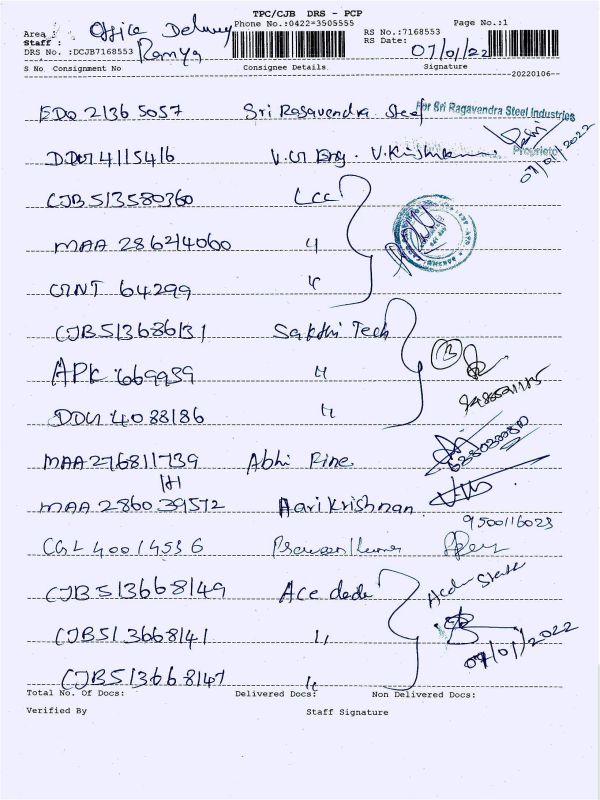 TPC/CJB DRS - PCP
Area : Office Delivery Phone No.:0422=3505555 RS No.:7168553 Page No.:1
Staff : Ramya RS Date: 07/01/22
DRS No. :DCJB7168553
S No Consignment No Consignee Details Signature
20220106
EDO 2136 5057 Sri Ragavendra Steel For Sri Ragavendra Steel Industries
Proprietor
07/01/2022
4115416 V.G Eng.
CJB 513580360 LCC
MAA 286214060 "
GNT 64299 "
CJB 513686131 Sakthi Tech
APK 669939 "
4088186 "
MAA 276811739 Abhi Fine
MAA 2860 39572 Aari Krishnan
9500116023
CGL 40014536
CJB 513668149 Ace dade
CJB 513668141 "
07/01/2022
CJB 513668147 "
Total No. Of Docs: Delivered Docs: Non Delivered Docs:
Verified By Staff Signature